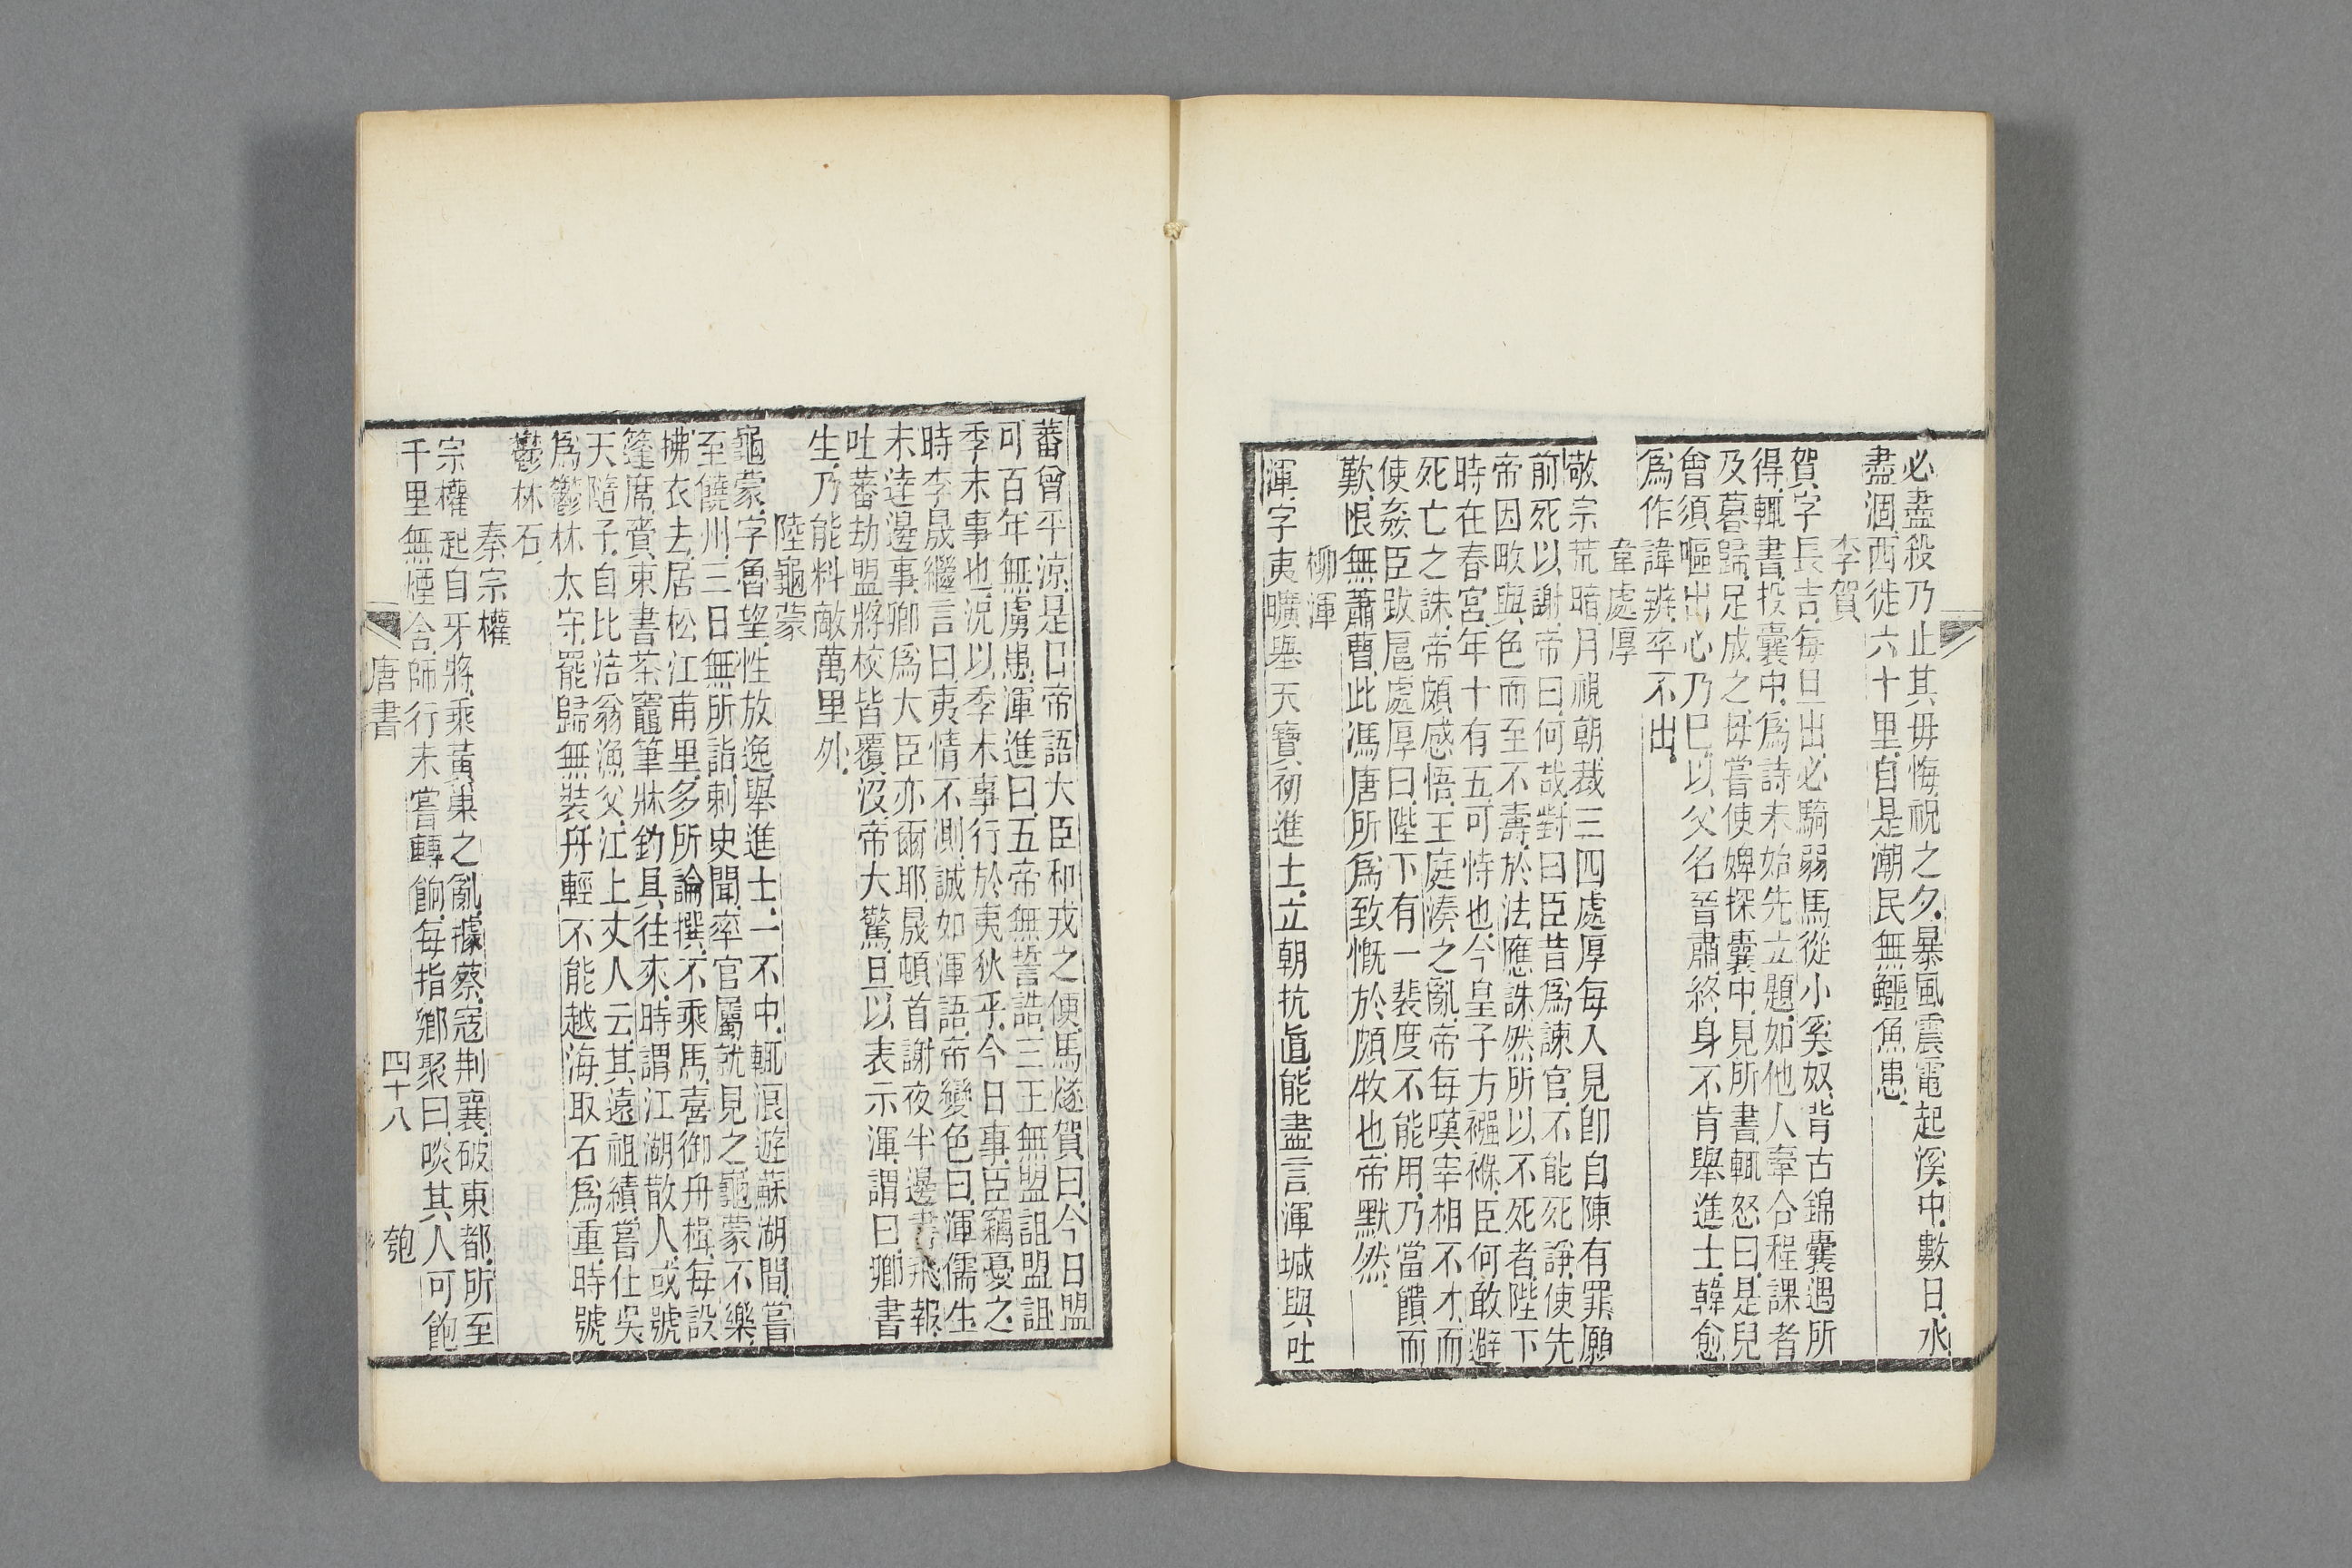 必盡殺乃止其毋悔祝之夕暴風震電起溪中數日水
盡涸西徙六十里自是潮民無鱷魚患
李賀
賀字長吉每旦出必騎弱馬從小奚奴背古錦囊遇所
得輒書投囊中爲詩未始先立題如他人牽合程課者
及暮歸足成之母嘗使婢探囊中見所書輒怒曰是兒
曾須嘔出心乃已以父名晉肅終身不肯舉進士韓愈
爲作諱辨卒不出
韋處厚
敬宗荒暗月視朝裁三四處厚每入見卽自陳有罪願
前死以謝帝曰何哉對曰臣昔爲諫官不能死諍使先
帝因畋與色而至不壽於法應誅然所以不死者陛下
時在春宮年十有五可恃也今皇子方襁褓臣何敢避
死亡之誅帝頗感悟王庭湊之亂帝每嘆宰相不才而
使姦臣跋扈處厚曰陛下有一裴度不能用乃當饋而
歎恨無蕭曹此馮唐所爲致慨於頗牧也帝默然
柳渾
渾字夷曠舉天寶初進士立朝抗直能盡言渾瑊與吐
蕃曾平涼是日帝語大臣和戎之便馬燧賀曰今日盟
可百年無虜患渾進曰五帝無誓誥三王無盟詛盟詛
季末事也況以季末事行於夷狄乎今日事臣竊憂之
時李晟繼言曰夷情不測誠如渾語帝變色曰渾儒生
未達邊事卿爲大臣亦爾耶晟頓首謝夜半邊書飛報
吐蕃劫盟將校皆覆沒帝大驚旦以表示渾謂曰卿書
生乃能料敵萬里外
陸龜蒙
龜蒙字魯望性放逸舉進士一不中輒浪遊蘇湖間嘗
至饒州三日無所詣刺史聞率官屬就見之龜蒙不樂
拂衣去居松江甫里多所論撰不乘馬喜御舟楫每設
篷席賫束書茶竈筆牀釣具往來時謂江湖散人或號
天隨子自比涪翁漁父江上丈人云其遠祖績嘗仕吳
爲鬱林太守罷歸無裝舟輕不能越海取石爲重時號
鬱林石
秦宗權
宗權起自牙將乘黃巢之亂據蔡寇荆襄破東都所至
千里無煙舍師行未嘗轉餉每指鄉聚曰啖其人可飽
唐書 四十八 匏